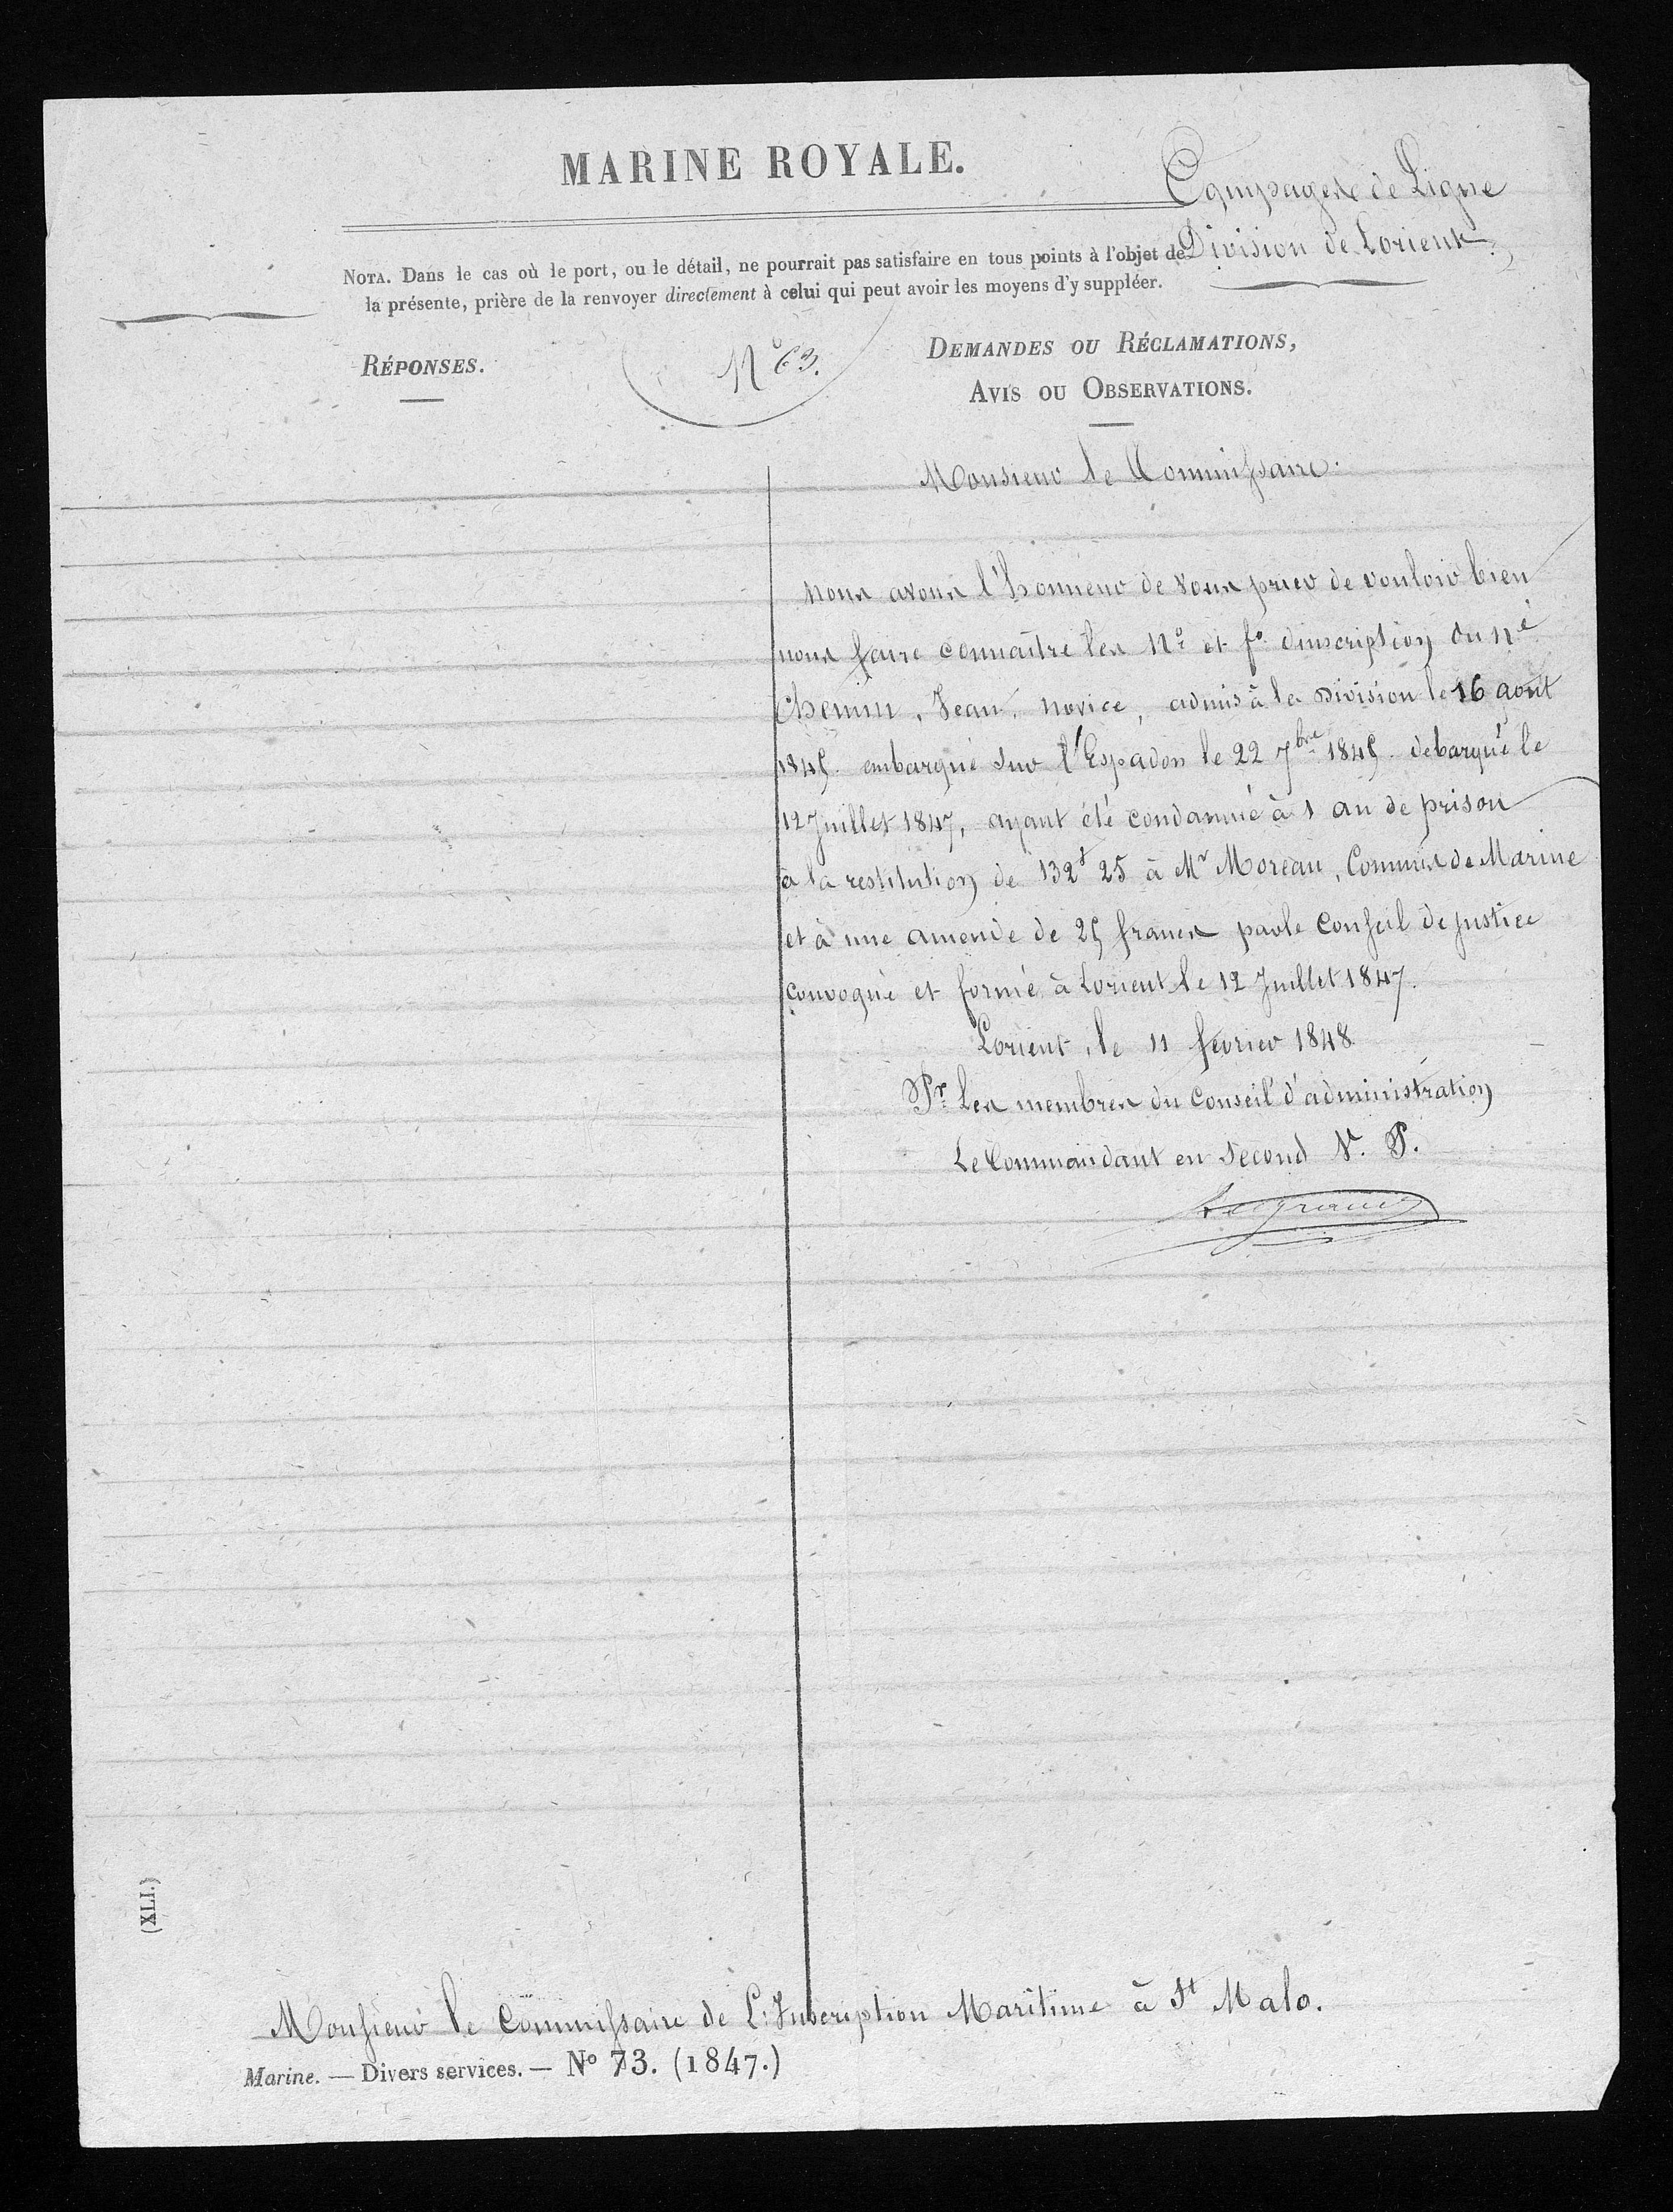 MARINE ROYALE.
Compagnies de Ligne
Division de Lorient
NOTA. Dans le cas où le port, ou le détail, ne pourrait pas satisfaire en tous points à l'objet de
la présente, prière de la renvoyer directement à celui qui peut avoir les moyens d'y suppléer.
RÉPONSES.
N° 63.
DEMANDES OU RÉCLAMATIONS,
AVIS OU OBSERVATIONS.
Monsieur le Commissaire.
nous avons l'honneur de vous prier de vouloir bien
nous faire connaître les Nº et fº d'inscription du né
Chemin, Jean, novice, admis à la Division le 16 aout
1845. embarqué sur l'Espadon le 22 7bre 1845. debarqué le
12 Juillet 1847, ayant été condamné à 1 an de prison
à la restitution de 132f 25 à Mr Moreau, Commis de Marine
et à une amende de 25 francs par le Conseil de justice
convoqué et formé à Lorient le 12 Juillet 1847.
Lorient, le 11 fevrier 1848
Pr Les membres du Conseil d'administration
Le Commandant en Second V. P.
Legrand
(XLI.)
Monsieur le Commissaire de L'Inscription Maritime à St Malo.
Marine. — Divers services. — No 73. (1847.)